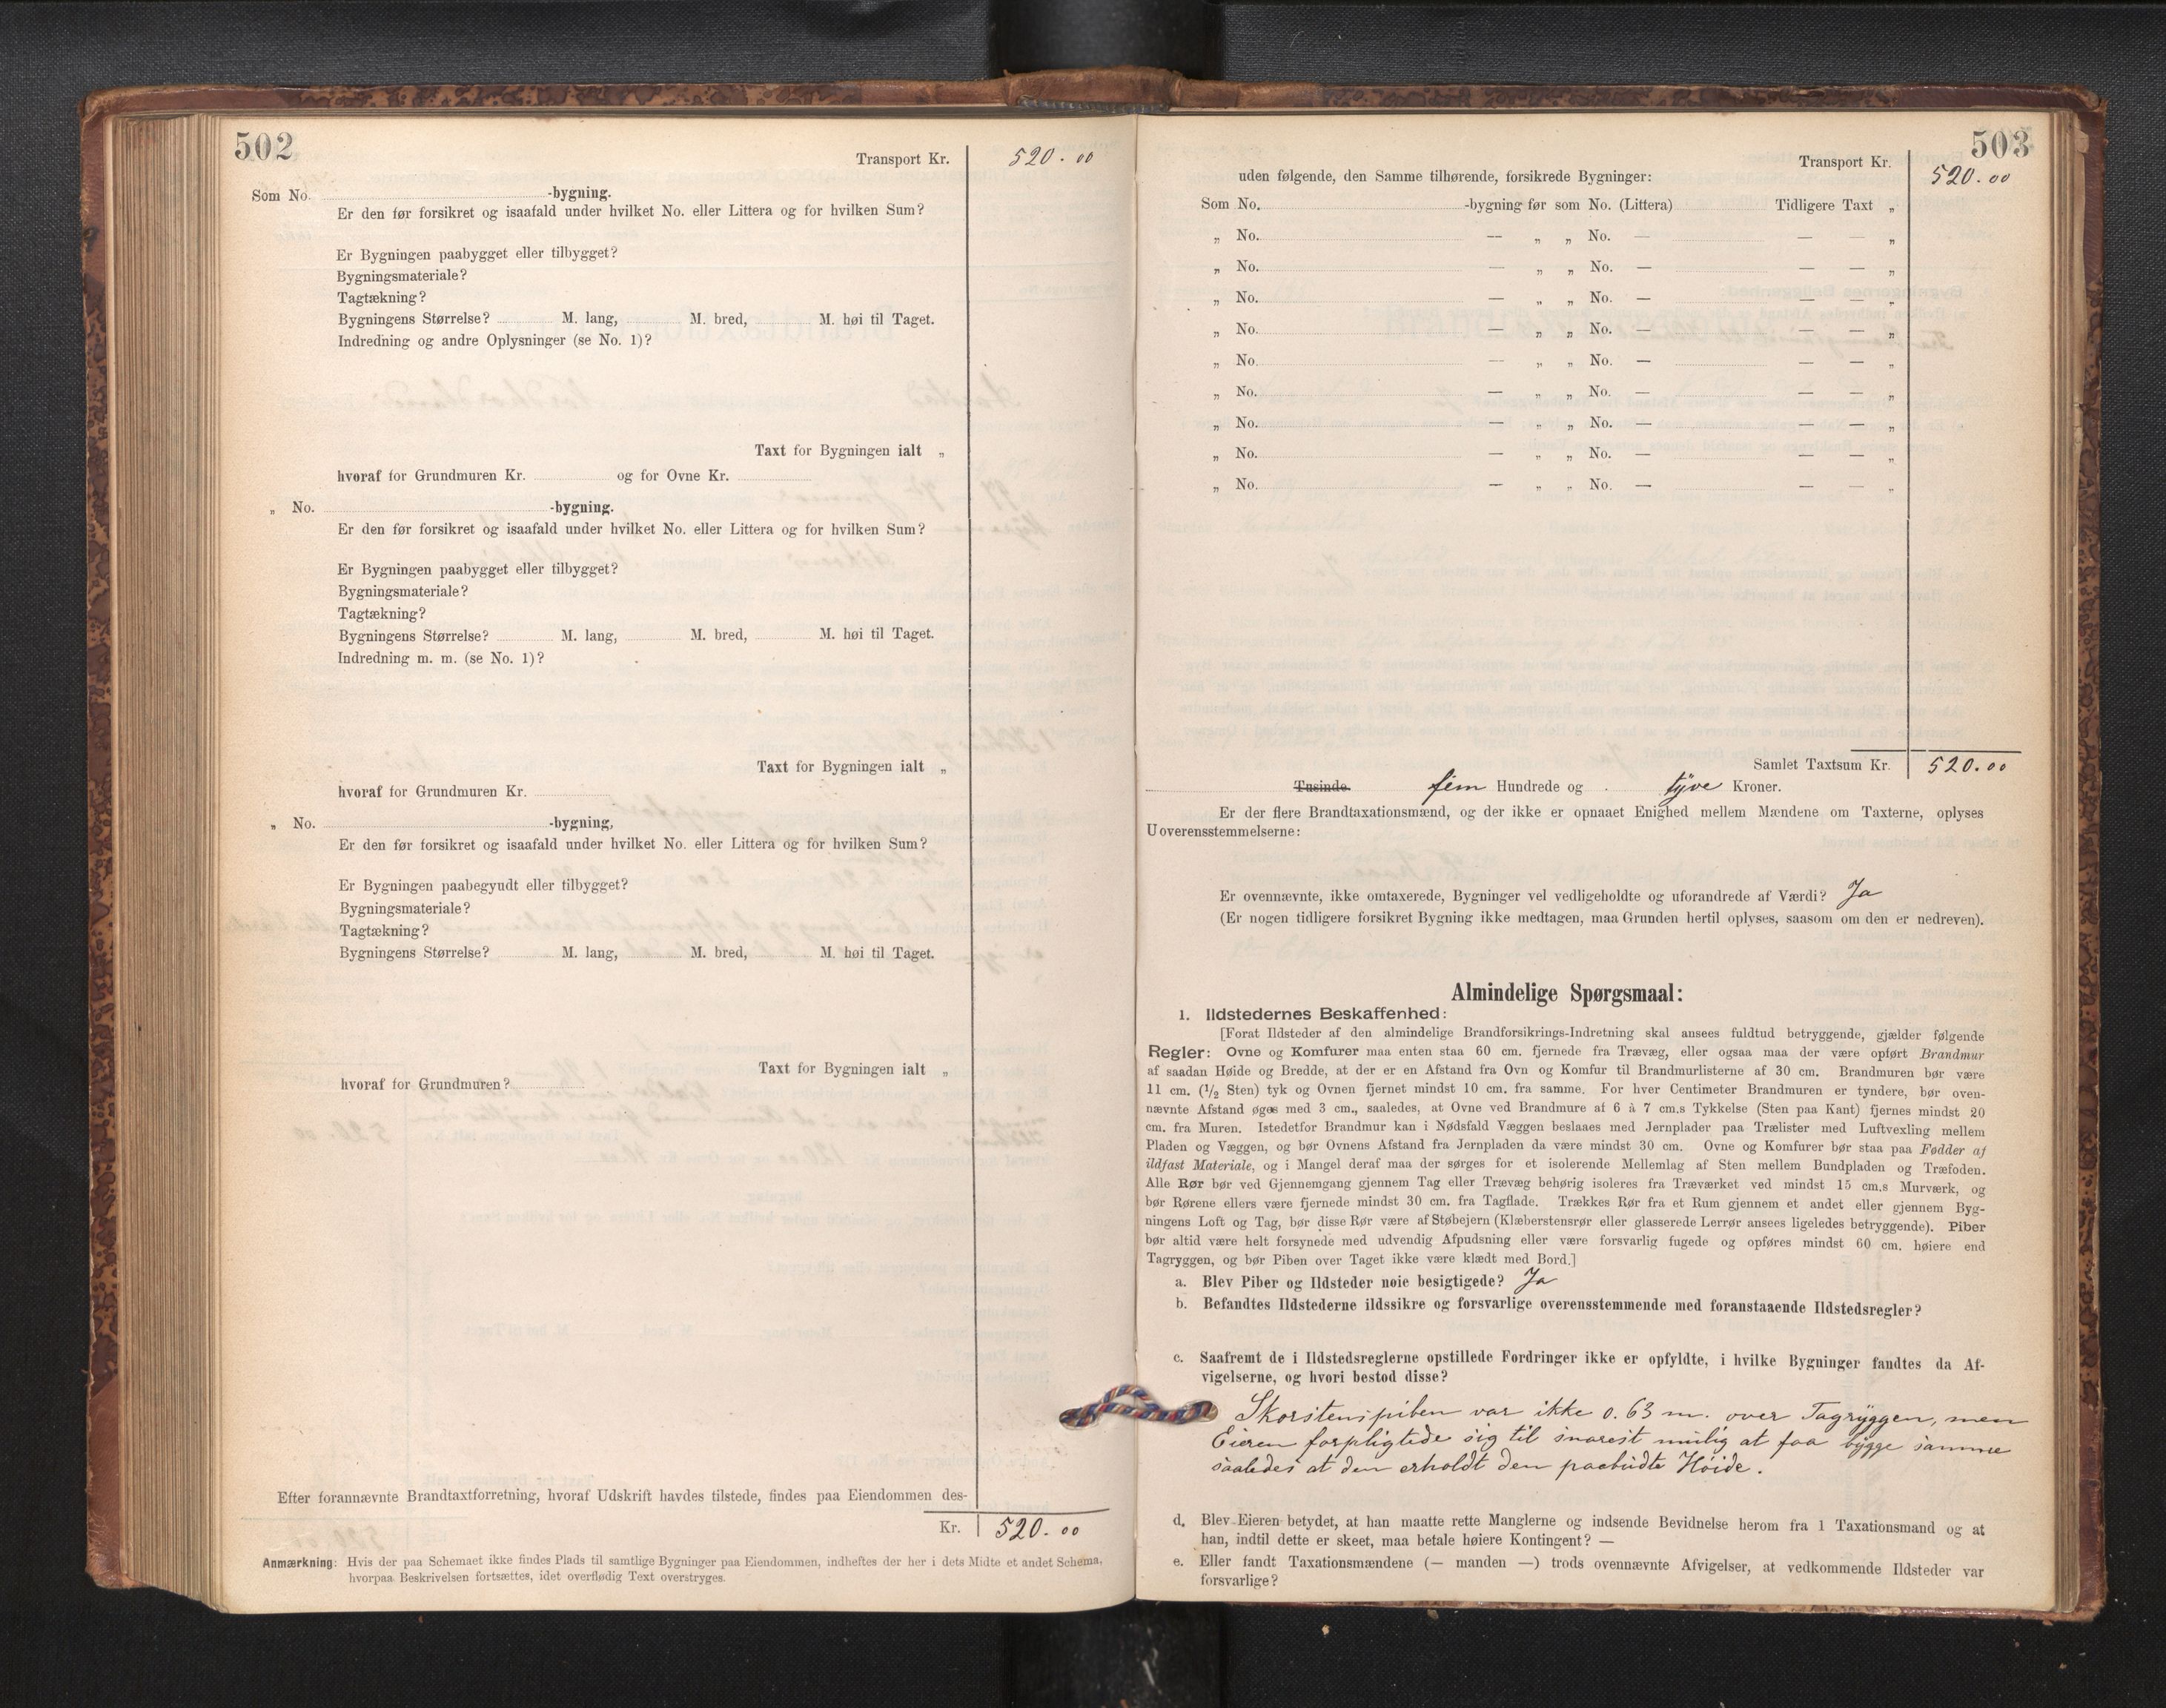 502
Transport Kr. 520.00
Som No. -bygning.
Er den før forsikret og isaafald under hvilket No. eller Littera og for hvilken Sum?
Er Bygningen paabygget eller tilbygget?
Bygningsmateriale?
Tagtækning?
Bygningens Størrelse? M. lang, M. bred, M. høi til Taget.
Indredning og andre Oplysninger (se No. 1)?
Taxt for Bygningen ialt „
hvoraf for Grundmuren Kr. og for Ovne Kr.
„ No. -bygning.
Er den før forsikret og isaafald under hvilket No. eller Littera og for hvilken Sum?
Er Bygningen paabygget eller tilbygget?
Bygningsmateriale?
Tagtækning?
Bygningens Størrelse? M. lang, M. bred, M. høi til Taget.
Indredning m. m. (se No. 1)?
Taxt for Bygningen ialt „
hvoraf for Grundmuren Kr.
„ No. -bygning,
Er den før forsikret og isaafald under hvilket No. eller Littera og for hvilken Sum?
Er Bygningen paabegyudt eller tilbygget?
Bygningsmateriale?
Tagtækning?
Bygningens Størrelse? M. lang, M. bred, M. høi til Taget.
Taxt for Bygningen ialt „
hvoraf for Grundmuren?
Efter forannævnte Brandtaxtforretning, hvoraf Udskrift havdes tilstede, findes paa Eiendommen des-
Kr. 520.00
Anmærkning: Hvis der paa Schemaet ikke findes Plads til samtlige Bygninger paa Eiendommen, indheftes der her i dets Midte et andet Schema,
hvorpaa Beskrivelsen fortsættes, idet overflødig Text overstryges.
503
Transport Kr. 520.00
uden følgende, den Samme tilhørende, forsikrede Bygninger:
Som No. -bygning før som No. (Littera) Tidligere Taxt „
„ No. — „ „ No. — — — „
„ No. — „ „ No. — — — „
„ No. — „ „ No. — — — „
„ No. — „ „ No. — — — „
„ No. — „ „ No. — — — „
„ No. — „ „ No. — — — „
„ No. — „ „ No. — — — „
„ No. — „ „ No. — — — „
„ No. — „ „ No. — — — „
Samlet Taxtsum Kr. 520.00
Tusinde fem Hundrede og tyve Kroner.
Er der flere Brandtaxationsmænd, og der ikke er opnaaet Enighed mellem Mændene om Taxterne, oplyses
Uoverensstemmelserne:
Er ovennævnte, ikke omtaxerede, Bygninger vel vedligeholdte og uforandrede af Værdi? Ja
(Er nogen tidligere forsikret Bygning ikke medtagen, maa Grunden hertil oplyses, saasom om den er nedreven).
Almindelige Spørgsmaal:
1. Ildstedernes Beskaffenhed:
[Forat Ildsteder af den almindelige Brandforsikrings-Indretning skal ansees fuldtud betryggende, gjælder følgende
Regler: Ovne og Komfurer maa enten staa 60 cm. fjernede fra Trævæg, eller ogsaa maa der være opført Brandmur
af saadan Høide og Bredde, at der er en Afstand fra Ovn og Komfur til Brandmurlisterne af 30 cm. Brandmuren bør være
11 cm. (1/2 Sten) tyk og Ovnen fjernet mindst 10 cm. fra samme. For hver Centimeter Brandmuren er tyndere, bør oven-
nævnte Afstand øges med 3 cm., saaledes, at Ovne ved Brandmure af 6 à 7 cm.s Tykkelse (Sten paa Kant) fjernes mindst 20
cm. fra Muren. Istedetfor Brandmur kan i Nødsfald Væggen beslaaes med Jernplader paa Trælister med Luftvexling mellem
Pladen og Væggen, og bør Ovnens Afstand fra Jernpladen da være mindst 30 cm. Ovne og Komfurer bør staa paa Fødder af
ildfast Materiale, og i Mangel deraf maa der sørges for et isolerende Mellemlag af Sten mellem Bundpladen og Træfoden.
Alle Rør bør ved Gjennemgang gjennem Tag eller Trævæg behørig isoleres fra Træværket ved mindst 15 cm.s Murværk, og
bør Rørene ellers være fjernede mindst 30 cm. fra Tagflade. Trækkes Rør fra et Rum gjennem et andet eller gjennem Byg-
ningens Loft og Tag, bør disse Rør være af Støbejern (Klæberstensrør eller glasserede Lerrør ansees ligeledes betryggende). Piber
bør altid være helt forsynede med udvendig Afpudsning eller være forsvarlig fugede og opføres mindst 60 cm. høiere end
Tagryggen, og bør Piben over Taget ikke være klædt med Bord.]
a. Blev Piber og Ildsteder nøie besigtigede? Ja
b. Befandtes Ildstederne ildssikre og forsvarlige overensstemmende med foranstaaende Ildstedsregler?
c. Saafremt de i Ildstedsreglerne opstillede Fordringer ikke er opfyldte, i hvilke Bygninger fandtes da Af-
vigelserne, og hvori bestod disse?
Skorstenspiben var ikke 0.63 m. over Tagryggen, men
Eieren forpligtede sig til snarest mulig at faa bygge samme
saaledes at den erholdt den paabudte Høide.
d. Blev Eieren betydet, at han maatte rette Manglerne og indsende Bevidnelse herom fra 1 Taxationsmand og at
han, indtil dette er skeet, maa betale høiere Kontingent? —
e. Eller fandt Taxationsmændene (— manden —) trods ovennævnte Afvigelser, at vedkommende Ildsteder var
forsvarlige?